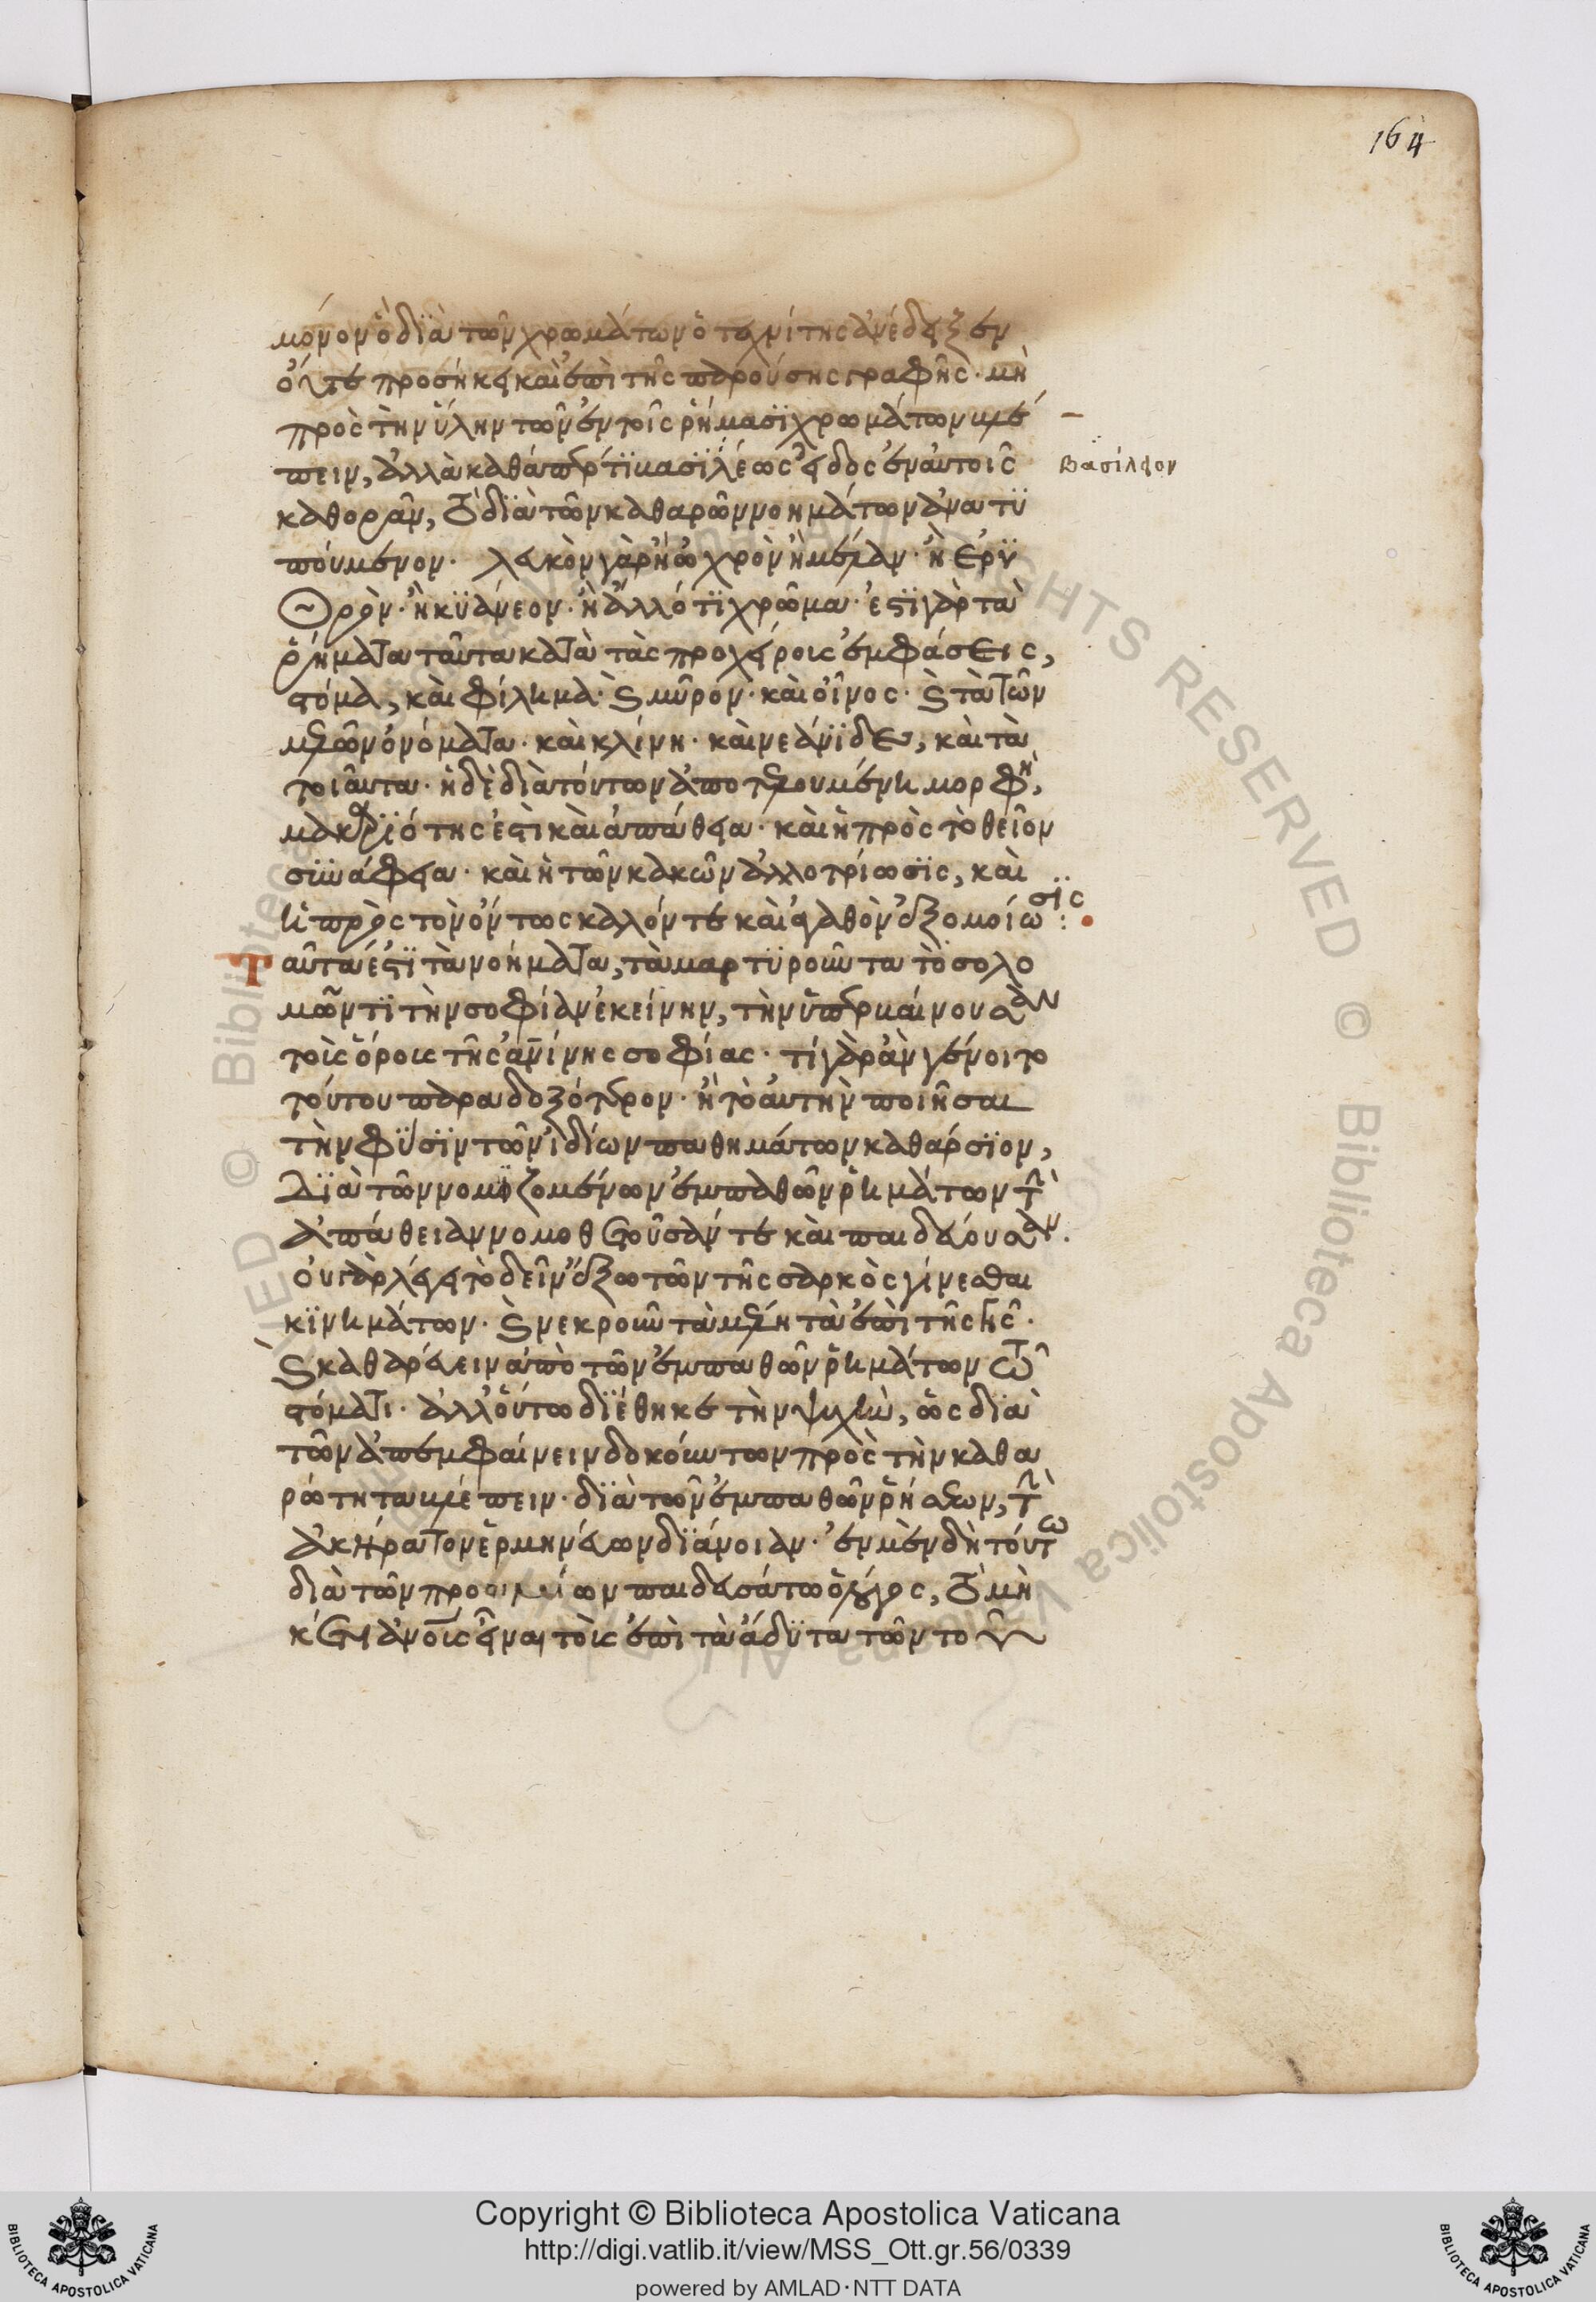 164
μόνον ὃ διὰ τῶν χρωμάτων ὁ τεχνίτης ἀνέδειξεν
οὕτε προσήκει καὶ ἐπὶ τῆς παρούσης γραφῆς· μὴ
πρὸς τὴν ὕλην τῶν ἐν τοῖς ῥήμασι χρωμάτων βλέ
πειν, ἀλλὰ καθάπέρ τι βασιλέως εἶδος ἐν αὐτοῖς
βασίλειον
καθορᾶν, τὸ διὰ τῶν καθαρῶν νοημάτων ἀνατυ
πούμενον. λευκὸν γὰρ ἢ ὠχρὸν ἢ μέλαν· ἢ ἐρυ
θρὸν· ἢ κυάνεον· ἢ ἄλλό τι χρῶμα· ἐστὶ γὰρ τὰ
ῥήματα ταῦτα κατὰ τὰς προχείροις ἐμφάσεις,
στόμα, καὶ φίλημα· καὶ μῦρον· καὶ οἶνος· καὶ τὰ τῶν
μελῶν ὀνόματα· καὶ κλίνη· καὶ νεάνιδες, καὶ τὰ
τοιαῦτα· ἡ δὲ διὰ τούτων ἀποτελουμένη μορφὴ,
μακαριότης ἐστὶ καὶ ἀπάθεια· καὶ ἡ πρὸς τὸ θεῖον
συνάφεια· καὶ ἡ τῶν κακῶν ἀλλοτρίωσις, καὶ
ἡ πρὸς τὸν ὄντως καλόν τε καὶ ἀγαθὸν ἐξομοίωσις:
Ταῦτα ἐστὶ τὰ νοήματα, τὰ μαρτυροῦντα τὸ σολο
μῶντι τὴν σοφίαν ἐκείνην, τὴν ὑπερβαίνουσαν
τοῖς ὅροις τῆς ἀνίνης σοφίας· τί γὰρ ἂν γένοιτο
τούτου παραδοξότερον· ἢ τὸ αὐτὴν ποιῆσαι
τὴν φύσιν τῶν ἰδίων παθημάτων καθάρσιον,
διὰ τῶν νομιζομένων ἐμπαθῶν ῥημάτων τὴν
ἀπάθειαν νομοθετοῦσάν τε καὶ παιδεύουσαν.
οὐ γὰρ λέγει τὸ δεῖν ἔξω τῶν τῆς σαρκὸς γίνεσθαι
κινημάτων· καὶ νεκροῦν τὰ μέλη τὰ ἐπὶ τῆς γῆς·
καὶ καθαρεύειν ἀπὸ τῶν ἐμπαθῶν ῥημάτων τῶ
στόματι· ἀλλ' οὕτω διέθηκε τὴν ψυχὴν, ὡς διὰ
τῶν ἀπεμφαίνειν δοκούντων πρὸς τὴν καθα
ρότητα βλέπειν· διὰ τῶν ἐμπαθῶν ῥήσεων, τὴν
ἀκήρατον ἑρμηνεύων διάνοιαν· ἐν μὲν δὴ τούτω
διὰ τῶν προοιμίων παιδευσάτω ὁ λόγος, τὸ μὴ
κέτι ἀνοῖς εἶναι τοῖς ἐπὶ τὰ ἄδυτα τῶν το
Copyright © Biblioteca Apostolica Vaticana
http://digi.vatlib.it/view/MSS_Ott.gr.56/0339
powered by AMLAD·NTT DATA